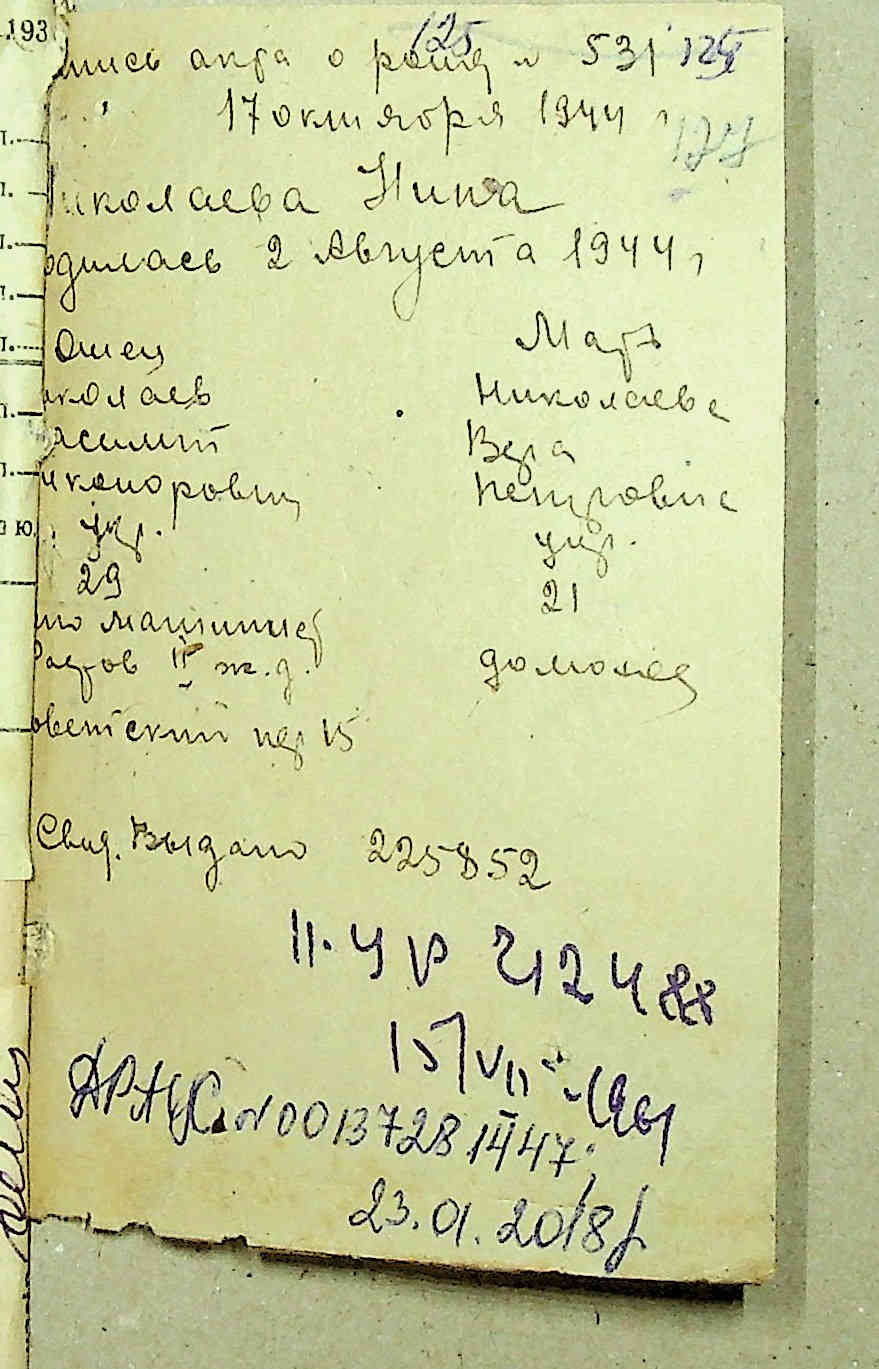 193
125
пись акта о рожд № 531 125
17 октября 1944 г
177
иколаева Нина
одилась 2 Августа 1944 г
Отец Мать
иколаев Николаева
асилий Вера
иконорович Петровна
укр. укр.
29 21
Ростов ж.д. домохоз
оветский пер 15
Свид. Выдано 225852
II-УР 212488
15/VII-1961
ДРАЦС № 00137281447
23.01.2018